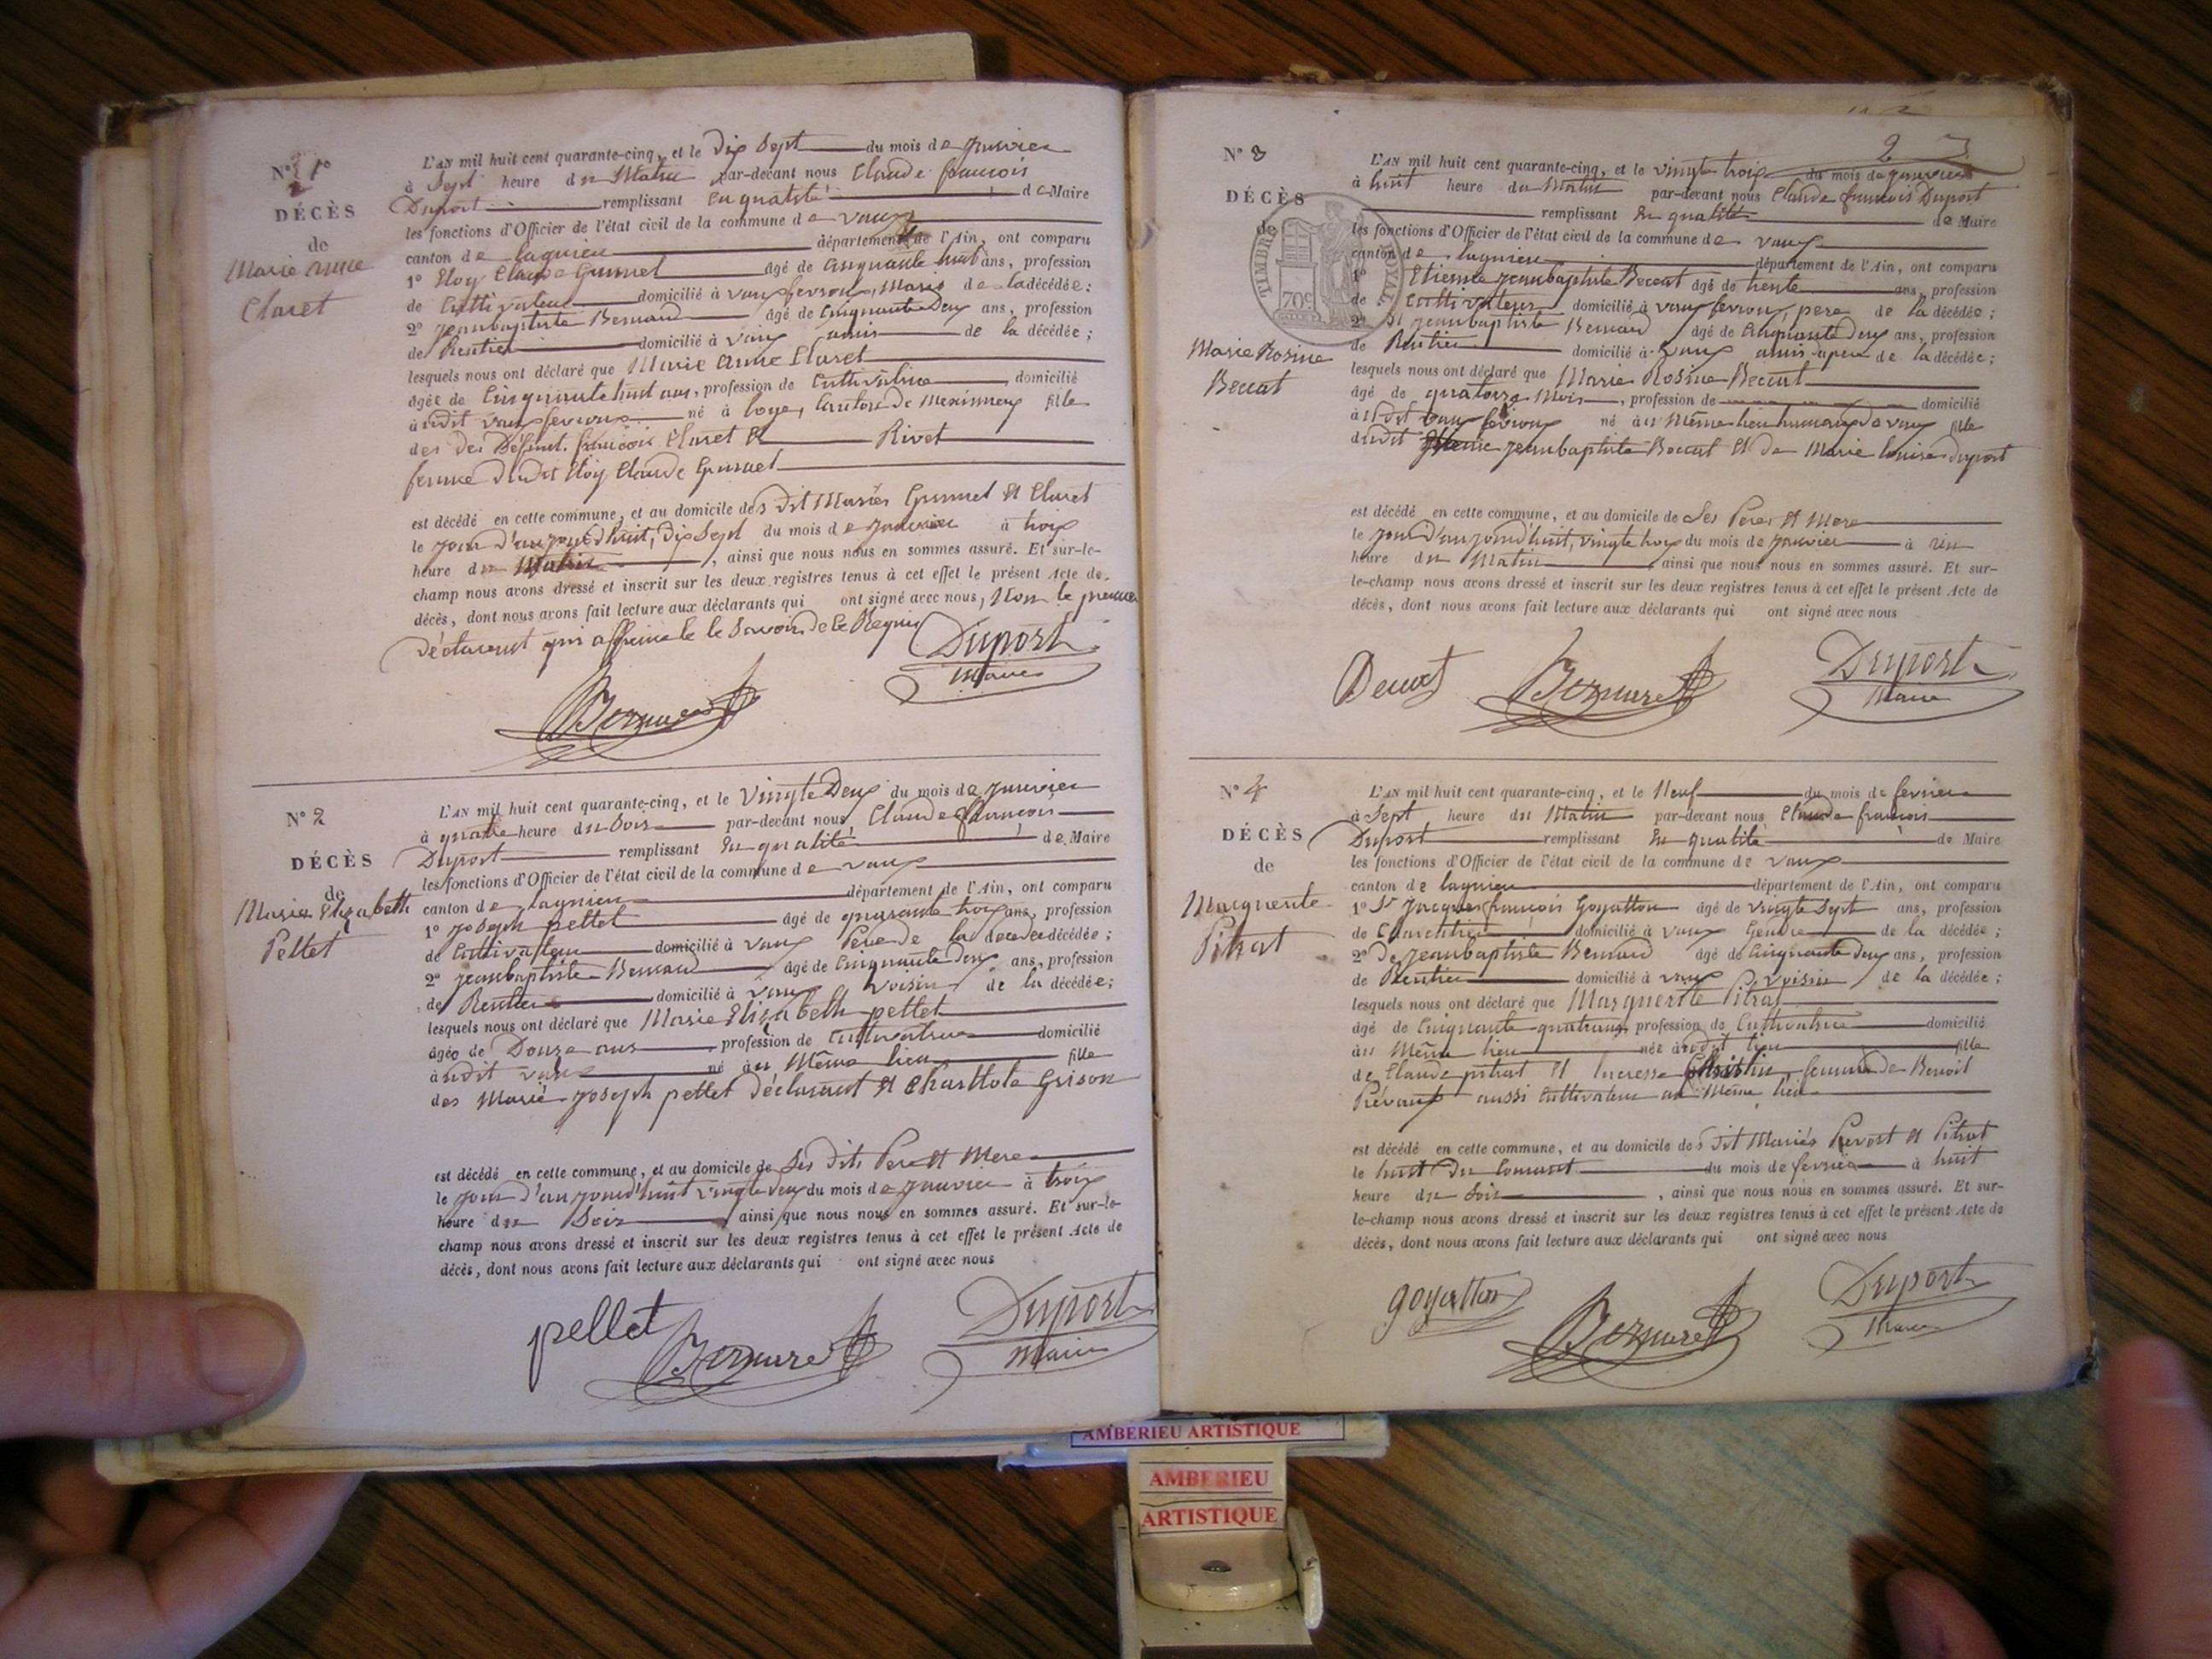 N° 1°
DÉCÈS
de
Marie anne
Claret
L'AN mil huit cent quarante-cinq, et le dix Sept du mois de janvier
à Sept heure du Matin par-devant nous Claude françois
Duport remplissant en qualité de Maire
les fonctions d'Officier de l'état civil de la commune de vaux
canton de lagnieu département de l'Ain, ont comparu
1° Eloy Claude âgé de Cinquante huit ans, profession
de Cultivateur domicilié à vaux fevroux, Marié de la décédée;
2° jeanbaptiste Bernard âgé de Cinquante Deux ans, profession
de Rentier domicilié à vaux amis de la décédée;
lesquels nous ont déclaré que Marie anne Claret
âgée de Cinquante huit ans, profession de Cultivatrice domicilié
audit vaux fevroux né à loyes, Canton de Meximieux fille
des Défunt françois Claret Et Rivet
femme dudit Eloy Claude
est décédé en cette commune, et au domicile des dit Mariés Et Claret
le jour d'aujourd'huit, dix Sept du mois de janvier à trois
heure du Matin, ainsi que nous nous en sommes assuré. Et sur-le-
champ nous avons dressé et inscrit sur les deux registres tenus à cet effet le présent Acte de
décès, dont nous avons fait lecture aux déclarants qui ont signé avec nous, Non le premier
déclarant qui a le Savoir de ce Requis
Duport
Maire
Bernard
N° 2
DÉCÈS
de
Marie Elizabeth
Pellet
L'AN mil huit cent quarante-cinq, et le vingte Deux du mois de janvier
à quatre heure du Soir par-devant nous Claude françois
Duport remplissant En qualité de Maire
les fonctions d'Officier de l'état civil de la commune de vaux
canton de lagnieu département de l'Ain, ont comparu
1° joseph pellet âgé de quarante trois ans, profession
de Cultivateur domicilié à vaux Pere de la décédée;
2° jeanbaptiste Bernard âgé de Cinquante Deux ans, profession
de Rentier domicilié à vaux voisin de la décédée;
lesquels nous ont déclaré que Marie Elizabeth pellet
âgée de Douze ans profession de Cultivatrice domicilié
audit vaux né au Même lieu fille
des Marié joseph pellet Déclarant Et Charllote Grison
est décédé en cette commune, et au domicile de Ses dits Pere Et Mere
le jour d'aujourd'huit vingte deux du mois de janvier à trois
heure du Soir ainsi que nous nous en sommes assuré. Et sur-le-
champ nous avons dressé et inscrit sur les deux registres tenus à cet effet le présent Acte de
décès, dont nous avons fait lecture aux déclarants qui ont signé avec nous
pellet
Bernard
Duport
Maire
2
N° 3
DÉCÈS
de
Marie Rosine
Beccat
TIMBRE ROYAL
70c
L'AN mil huit cent quarante-cinq, et le vingte trois du mois de janvier
à huit heure du Matin par-devant nous Claude françois Duport
remplissant En qualité de Maire
les fonctions d'Officier de l'état civil de la commune de vaux
canton de lagnieu département de l'Ain, ont comparu
1° Etienne jeanbaptiste Beccat âgé de trente ans, profession
de Cultivateur domicilié à vaux fevroux, pere de la décédée;
2° jeanbaptiste Bernard âgé de Cinquante Deux ans, profession
de Rentier domicilié à vaux amis de la décédée;
lesquels nous ont déclaré que Marie Rosine Beccat
âgé de quatorze Mois, profession de domicilié
audit vaux fevroux né au Même lieu de vaux fille
dudit jeanbaptiste Beccat Et de Marie louise duport
est décédé en cette commune, et au domicile de Ses Pere Et Mere
le jour d'aujourd'huit, vingte trois du mois de janvier à un
heure du Matin ainsi que nous nous en sommes assuré. Et sur-
le-champ nous avons dressé et inscrit sur les deux registres tenus à cet effet le présent Acte de
décès, dont nous avons fait lecture aux déclarants qui ont signé avec nous
Bernard
Duport
Maire
N° 4
DÉCÈS
de
Marguerite
Pitrat
L'AN mil huit cent quarante-cinq, et le Neuf du mois de fevrier
à Sept heure du Matin par-devant nous Claude françois
Duport remplissant En qualité de Maire
les fonctions d'Officier de l'état civil de la commune de vaux
canton de lagnieu département de l'Ain, ont comparu
1° Sr Jacques françois Goyatton âgé de vingte Sept ans, profession
de domicilié à vaux Gendre de la décédée;
2° De jeanbaptiste Bernard âgé de Cinquante Deux ans, profession
de Rentier domicilié à vaux voisin de la décédée;
lesquels nous ont déclaré que Marguerite Pitrat
âgé de Cinquante quatre ans, profession de Cultivatrice domicilié
au Même lieu née audit lieu fille
de Claude pitrat Et femme de Benoit
aussi Cultivateur au Même lieu
est décédé en cette commune, et au domicile des dit Mariés Prevost Et Pitrat
le huit Du Courant du mois de fevrier à huit
heure du Soir, ainsi que nous nous en sommes assuré. Et sur-
le-champ nous avons dressé et inscrit sur les deux registres tenus à cet effet le présent Acte de
décès, dont nous avons fait lecture aux déclarants qui ont signé avec nous
goyatton
Bernard
Duport
Maire
AMBERIEU ARTISTIQUE
AMBERIEU
ARTISTIQUE